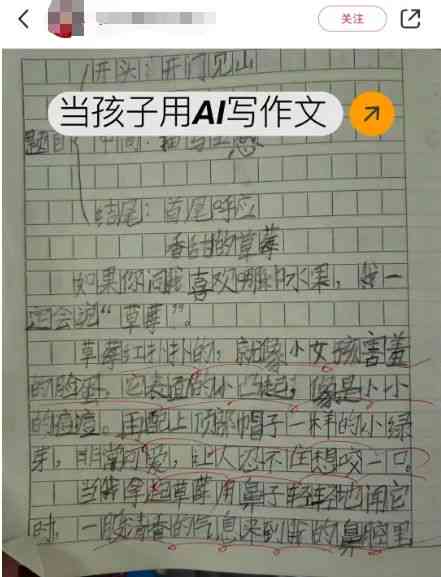 关注
开头:开门见山
当孩子用AI写作文
题目 中间:
结尾:首尾呼应
香甜的草莓
如果你问我喜欢哪种水果,我一
定会说“草莓”。
草莓红扑扑的,就像小女孩害羞
的脸蛋,它表面的小凸起,像是小小
的痘痘。再配上顶部帽子一样的小绿
芽,非常可爱,让人忍不住想咬一口。
当我拿起草莓用鼻子轻轻地闻它
时,一股清香的气息来到我的鼻腔里